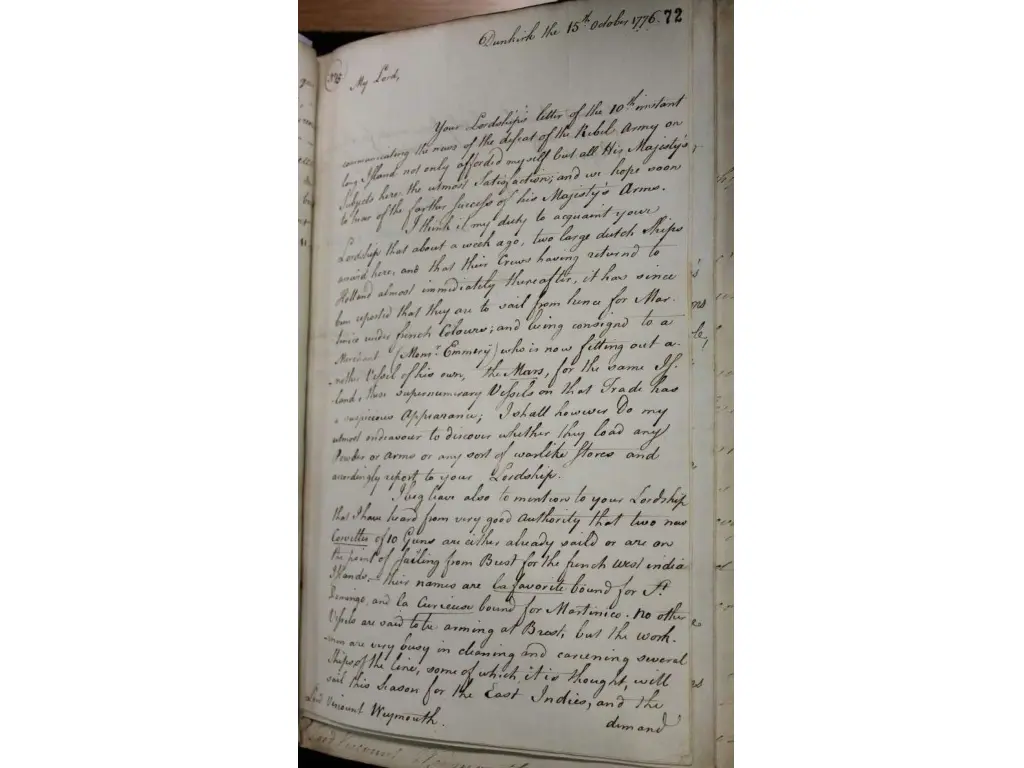 Dunkirk the 15th October 1776. 72
My Lord,
Your Lordship's letter of the 10th instant
communicating the news of the defeat of the Rebel Army on
long Island not only afforded myself but all His Majesty's
Subjects here, the utmost Satisfaction; and we hope soon
to hear of the farther Success of his Majesty's Arms.
I think it my duty to acquaint your
Lordship that about a week ago, two large dutch Ships
arrived here, and that their Crews having returnd to
Holland almost immediately thereafter, it has since
been reported that they are to sail from hence for Mar-
tinico under french Colours; and being consignd to a
Merchant (Monsr. Emmery) who is now fitting out a-
-nother Vessel of his own, the Mars, for the same Is-
land, these supernumerary Vessels on that Trade has
a suspicious Appearance; I shall however Do my
utmost endeavour to discover whether they load any
Powder or Arms or any sort of warlike Stores and
accordingly report to your Lordship.
I beg leave also to mention to your Lordship
that I have heard from very good Authority that two new
Corvettes of 10 Guns are either already saild or are on
the point of Sailing from Brest for the french west india
Islands. — their names are la favorite bound for St.
Domingo, and la Curieuse bound for Martinico. no other
Vessels are said to be arming at Brest, but the work-
-men are very busy in cleaning and careening several
Ships of the line, some of which, it is thought, will
sail this Season for the East Indies, and the
demand
Lord Viscount Weymouth.